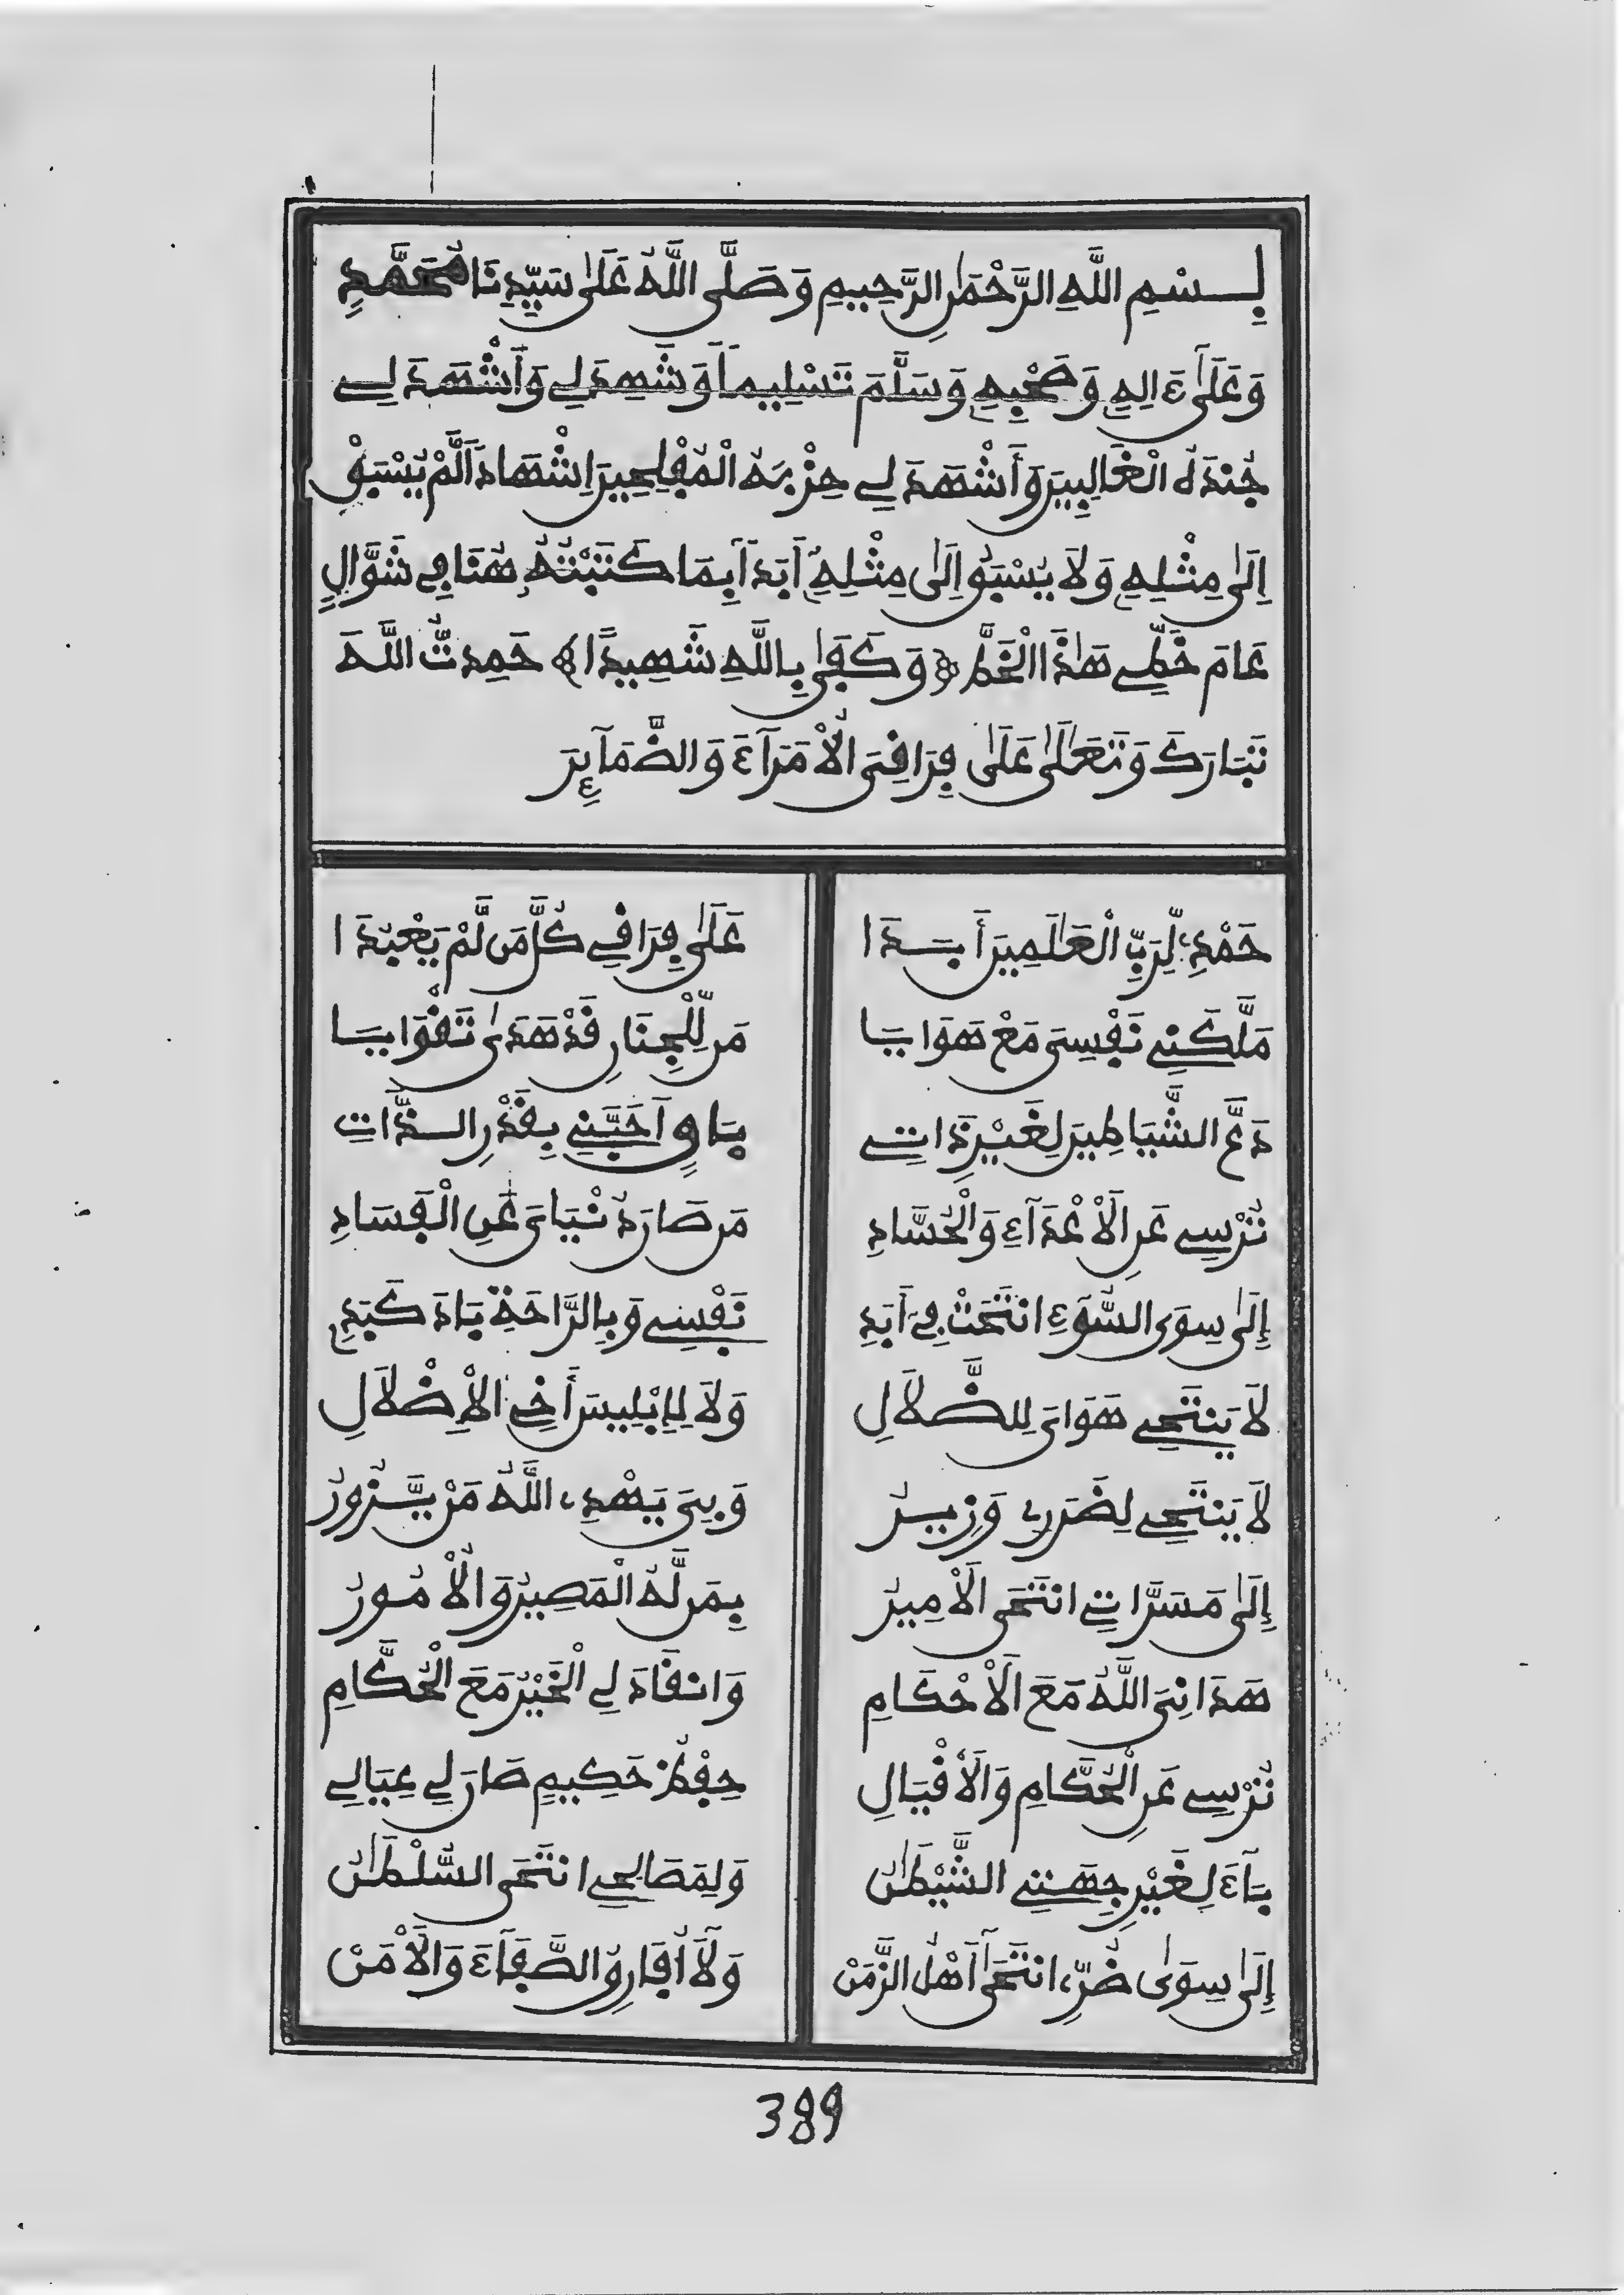 بِسْمِ اللَّهِ الرَّحْمَٰنِ الرَّحِيمِ وَصَلَّى اللَّهُ عَلَىٰ سَيِّدِنَا مُحَمَّدٍ
وَعَلَىٰ ءَالِهِ وَصَحْبِهِ وَسَلَّمَ تَسْلِيماً وَشَهِدَ لِي وَأَشْهَدَ لِي
جُندَهُ الْغَالِبِينَ وَأَشْهَدَ لِي حِزْبَهُ الْمُفْلِحِينَ إِشْهَاداً لَّمْ يُسْبَقْ
إِلَىٰ مِثْلِهِ وَلَا يُسْبَقُ إِلَىٰ مِثْلِهِ أَبَداً بِمَا كَتَبْتُهُ هُنَا فِي شَوَّالِ
عَامَ خَطِّي هَٰذَا الْخَطَّ ﴿وَكَفَىٰ بِاللَّهِ شَهِيدًا﴾ حَمِدتُّ اللَّهَ
تَبَارَكَ وَتَعَالَىٰ عَلَىٰ فِرَاقِيَ الْأُمَرَآءَ وَالضَّمَآئِرَ
حَمْدِي لِرَبِّ الْعَالَمِينَ أَبَدَا عَلَىٰ فِرَاقِي كُلَّ مَن لَّمْ يَعْبُدَا
مَلَّكَنِي نَفْسِي مَعْ هَوَايَا مَن لِّلْجِنَانِ قَدْ هَدَىٰ تَقْوَايَا
دَعَّ الشَّيَاطِينَ لِغَيْرِ ذَاتِي بَاقٍ أَحَبَّنِي بِقَدْرِ الذَّاتِ
تُرْسِي عَنِ الْأَعْدَآءِ وَالْحُسَّادِ مَن صَانَ دُنْيَايَ عَنِ الْفَسَادِ
إِلَىٰ سِوَى السُّوَءِ انْتَحَتْ فِي أَبَدِ نَفْسِي وَبِالرَّاحَةِ بَادَ كَبَدِي
لَا يَنتَحِي هَوَايَ لِلضَّلَالِ وَلَا لِإِبْلِيسَ أَخِي الْإِضْلَالِ
لَا يَنتَحِي لِضَرَرِي وَزِيرُ وَبِيَ يَهْدِي اللَّهُ مَنْ يَّزُورُ
إِلَىٰ مَسَرَّاتِي انتَحَى الْأَمِيرُ بِمَن لَّهُ الْمَصِيرُ وَالْأُمُورُ
هَدَانِيَ اللَّهُ مَعَ الْأَحْكَامِ وَانقَادَ لِي الْخَيْرُ مَعَ الْحُكَّامِ
تُرْسِي عَنِ الْحُكَّامِ وَالْأَقْيَالِ حِفْظُ حَكِيمٍ صَانَ لِي عِيَالِي
بَآءَ لِغَيْرِ جِهَتِي الشَّيْطَانُ وَلِمَصَالِحِي انتَحَى السُّلْطَانُ
إِلَىٰ سِوَىٰ ضُرِّي انتَحَىٰ أَهْلُ الزَّمَنْ وَلَا أُفَارِقُ الصَّفَآءَ وَالْأَمَنْ
389